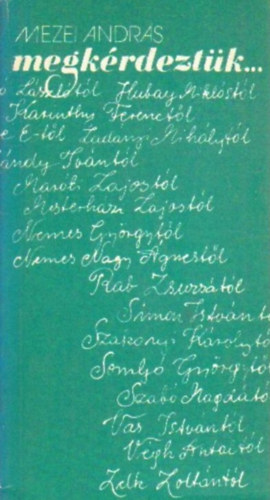 MEZEI ANDRÁS
megkérdeztük...
Lászlótól Hubay Miklóstól
Karinthy Ferenctől
e E-től Ladányi Mihálytól
ándy Ivántól
Maróti Lajostól
Mesterházi Lajostól
Nemes Györgytől
Nemes Nagy Ágnestől
Rab Zsuzsától
Simon Istvántó
Szakonyi Károlytó
Somlyó Györgytől
Szabó Magdátó
Vas Istvántól
Végh Antaltól
Zelk Zoltántól